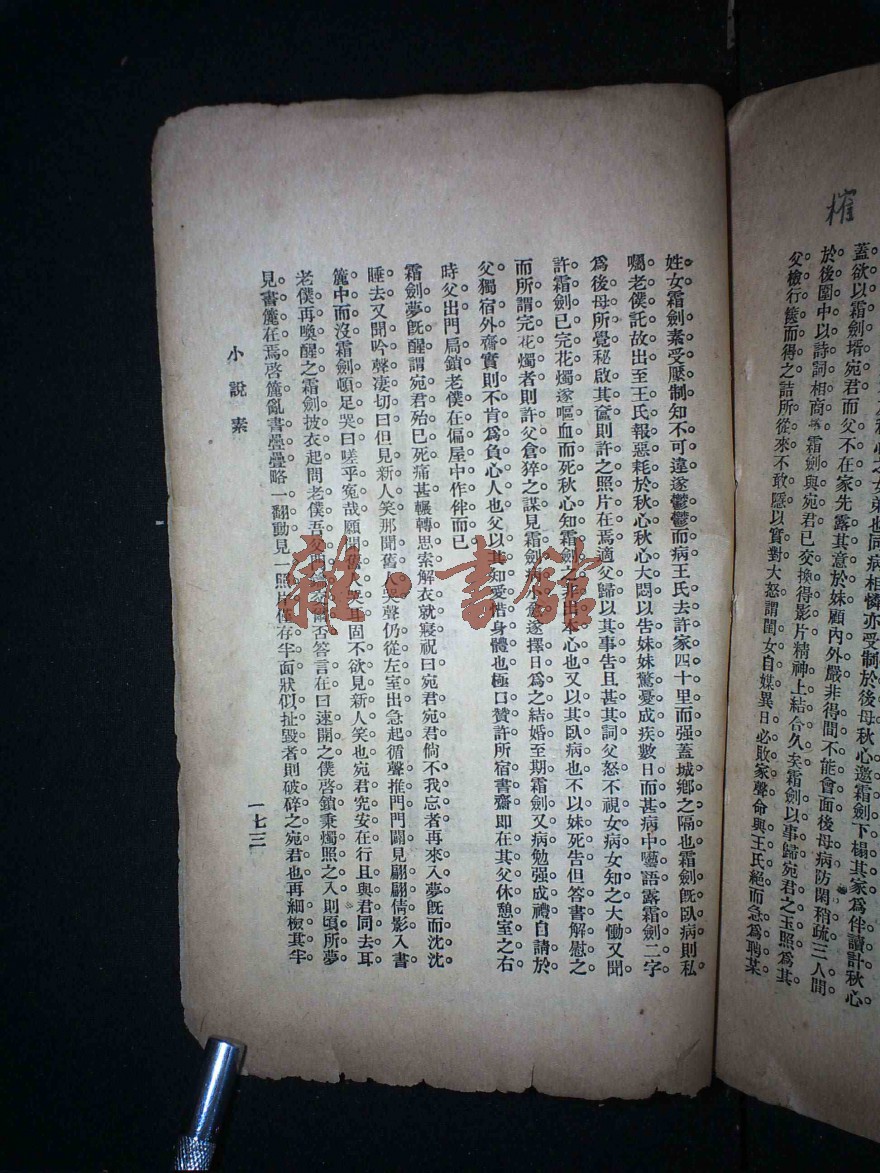 權
蓋欲以霜劍壻宛君而父不在家先露其意於妹顧內外嚴非得間不能會面後母病防閑稍疏三人間
於後園中以詩詞相商霜劍與宛君已交換得影片精神上結合久矣霜劍以事歸宛君之玉照爲其
父檢行篋而得之詰所從來不敢隱以實對大怒謂閨女自媒異日必敗家聲命與王氏絕而急爲聘某
姓女霜劍素受壓制知不可違遂鬱鬱而病王氏去許家四十里而强蓋城鄉之隔也霜劍旣臥病則私
囑老僕託故出至王氏報惡耗於秋心秋心大悶以告妹妹驚憂成疾數日而甚病中囈語露霜劍二字
爲後母所覺秘啟其奩則許之照片在焉適父歸以其事告且甚其詞父怒不視女病女知之大慟又聞
許霜劍已完花燭遂嘔血而死秋心知霜劍之非出本心也又以其臥病也不以妹死告但答書解慰之
而所謂完花燭者則許父倉猝之謀見霜劍病不愈遂擇日爲之結婚至期霜劍又病勉强成禮自請於
父獨宿外齋實則不肯爲負心人也父以其知愛惜身體也極口贊許所宿書齋即在其父休憩室之右
時父出門扃鎖老僕在偏屋中作伴而已
霜劍夢旣醒謂宛君殆已死痛甚輾轉思索解衣就寢祝曰宛君宛君倘不我忘者再來入夢旣而沈沈
睡去又聞吟聲凄切曰但見新人笑那聞舊人哭聲仍從左室出急起循聲推門門闢見翩翩倩影入書
簏中而沒霜劍頓足哭曰嗟乎冤哉願聞舊人哭耳固不欲見新人笑也宛君究安在行且與君同去耳
老僕再喚醒之霜劍披衣起問老僕吾父門鑰在否答言在曰速開之僕啓鎖秉燭照之入則頃所夢
見書簏在焉啓簏亂書疊疊略一翻動見一照片僅存半面狀似扯毀者則破碎之宛君也再細檢其半
小說素
一七三
雜·書館